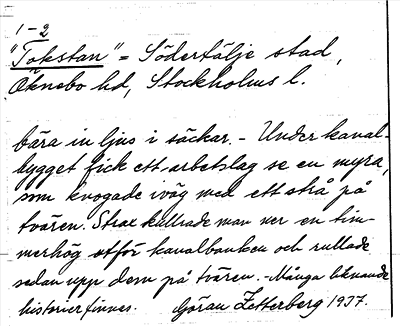 1-2
"Tokstan" = Södertälje stad,
Öknebo hd, Stockholms l.
bära in ljus i säckar. - Under kanal-
bygget fick ett arbetslag se en myra,
som knogade iväg med ett strå på
tvären. Strax kullrade man ner en tim-
merhög utför kanalbanken och rullade
sedan upp dem på tvären. - Många liknande
historier finnes. Göran Zetterberg 1937.